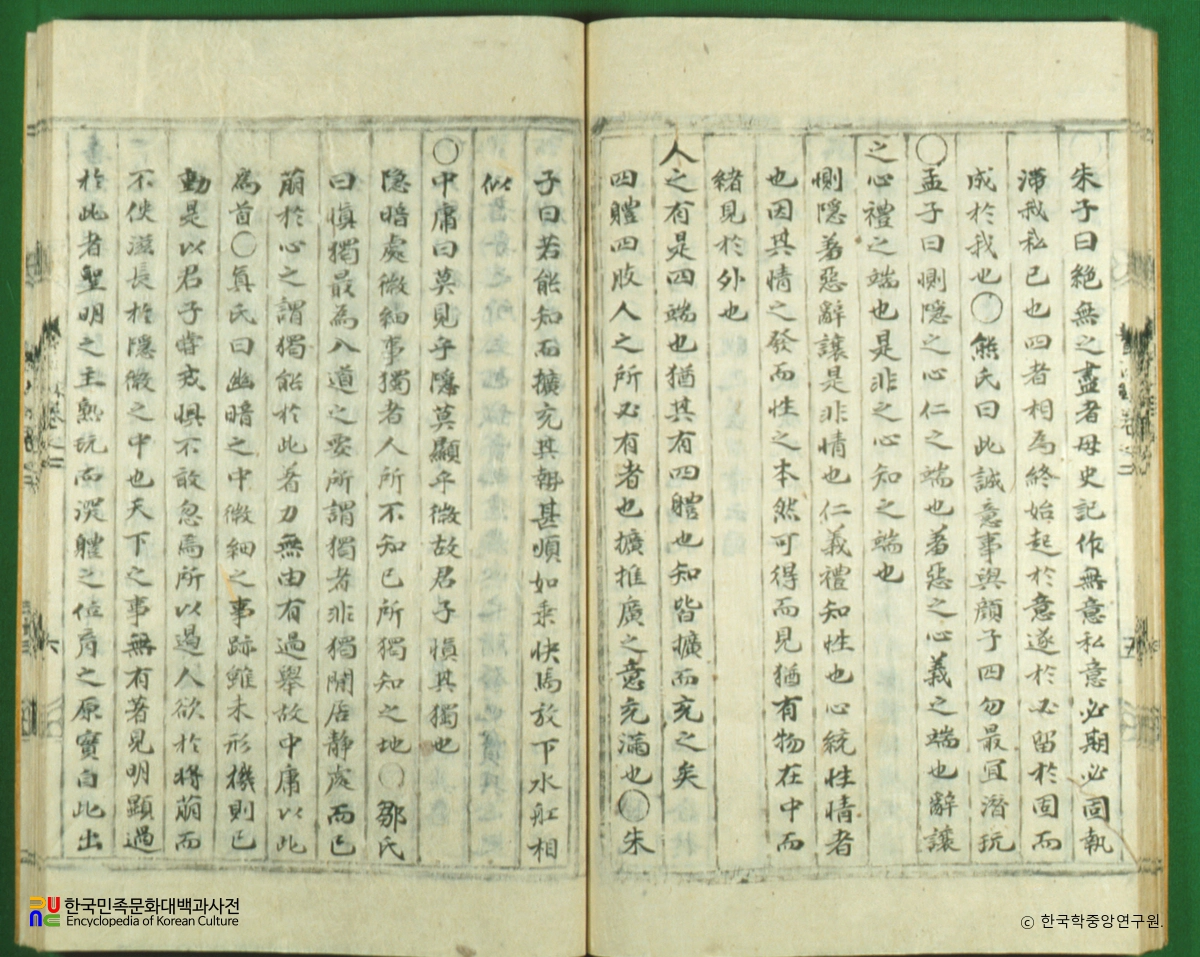 朱子曰絶無之盡者毋史記作無意私意必期必固執
滯我私已也四者相為終始起於意遂於必留於固而
成於我也○熊氏曰此誠意事與顔子四勿最宜潜玩
○孟子曰惻隠之心仁之端也羞惡之心義之端也辭讓
之心禮之端也是非之心知之端也
惻隠羞惡辭讓是非情也仁義禮知性也心統性情者
也因其情之發而性之本然可得而見猶有物在中而
緒見於外也
人之有是四端也猶其有四軆也知皆擴而充之矣
四軆四肢人之所必有者也擴推廣之意充滿也○朱
子曰若能知而擴充其勢甚順如乘快馬放下水舡相
似
○中庸曰莫見乎隠莫顯乎微故君子慎其獨也
隠暗處微細事獨者人所不知已所獨知之地○鄒氏
曰慎獨最為入道之要所謂獨者非獨閒居静處而已
萌於心之謂獨能於此着力無由有過舉故中庸以此
為首○真氏曰幽暗之中微細之事跡雖未形機則已
動是以君子當戒惧不敢忽焉所以遏人欲於將萌而
不使滋長於隠微之中也天下之事無有著見明顯過
於此者聖明之主熟玩而深軆之位育之原實自此出
한국민족문화대백과사전
Encyclopedia of Korean Culture
ⓒ 한국학중앙연구원.